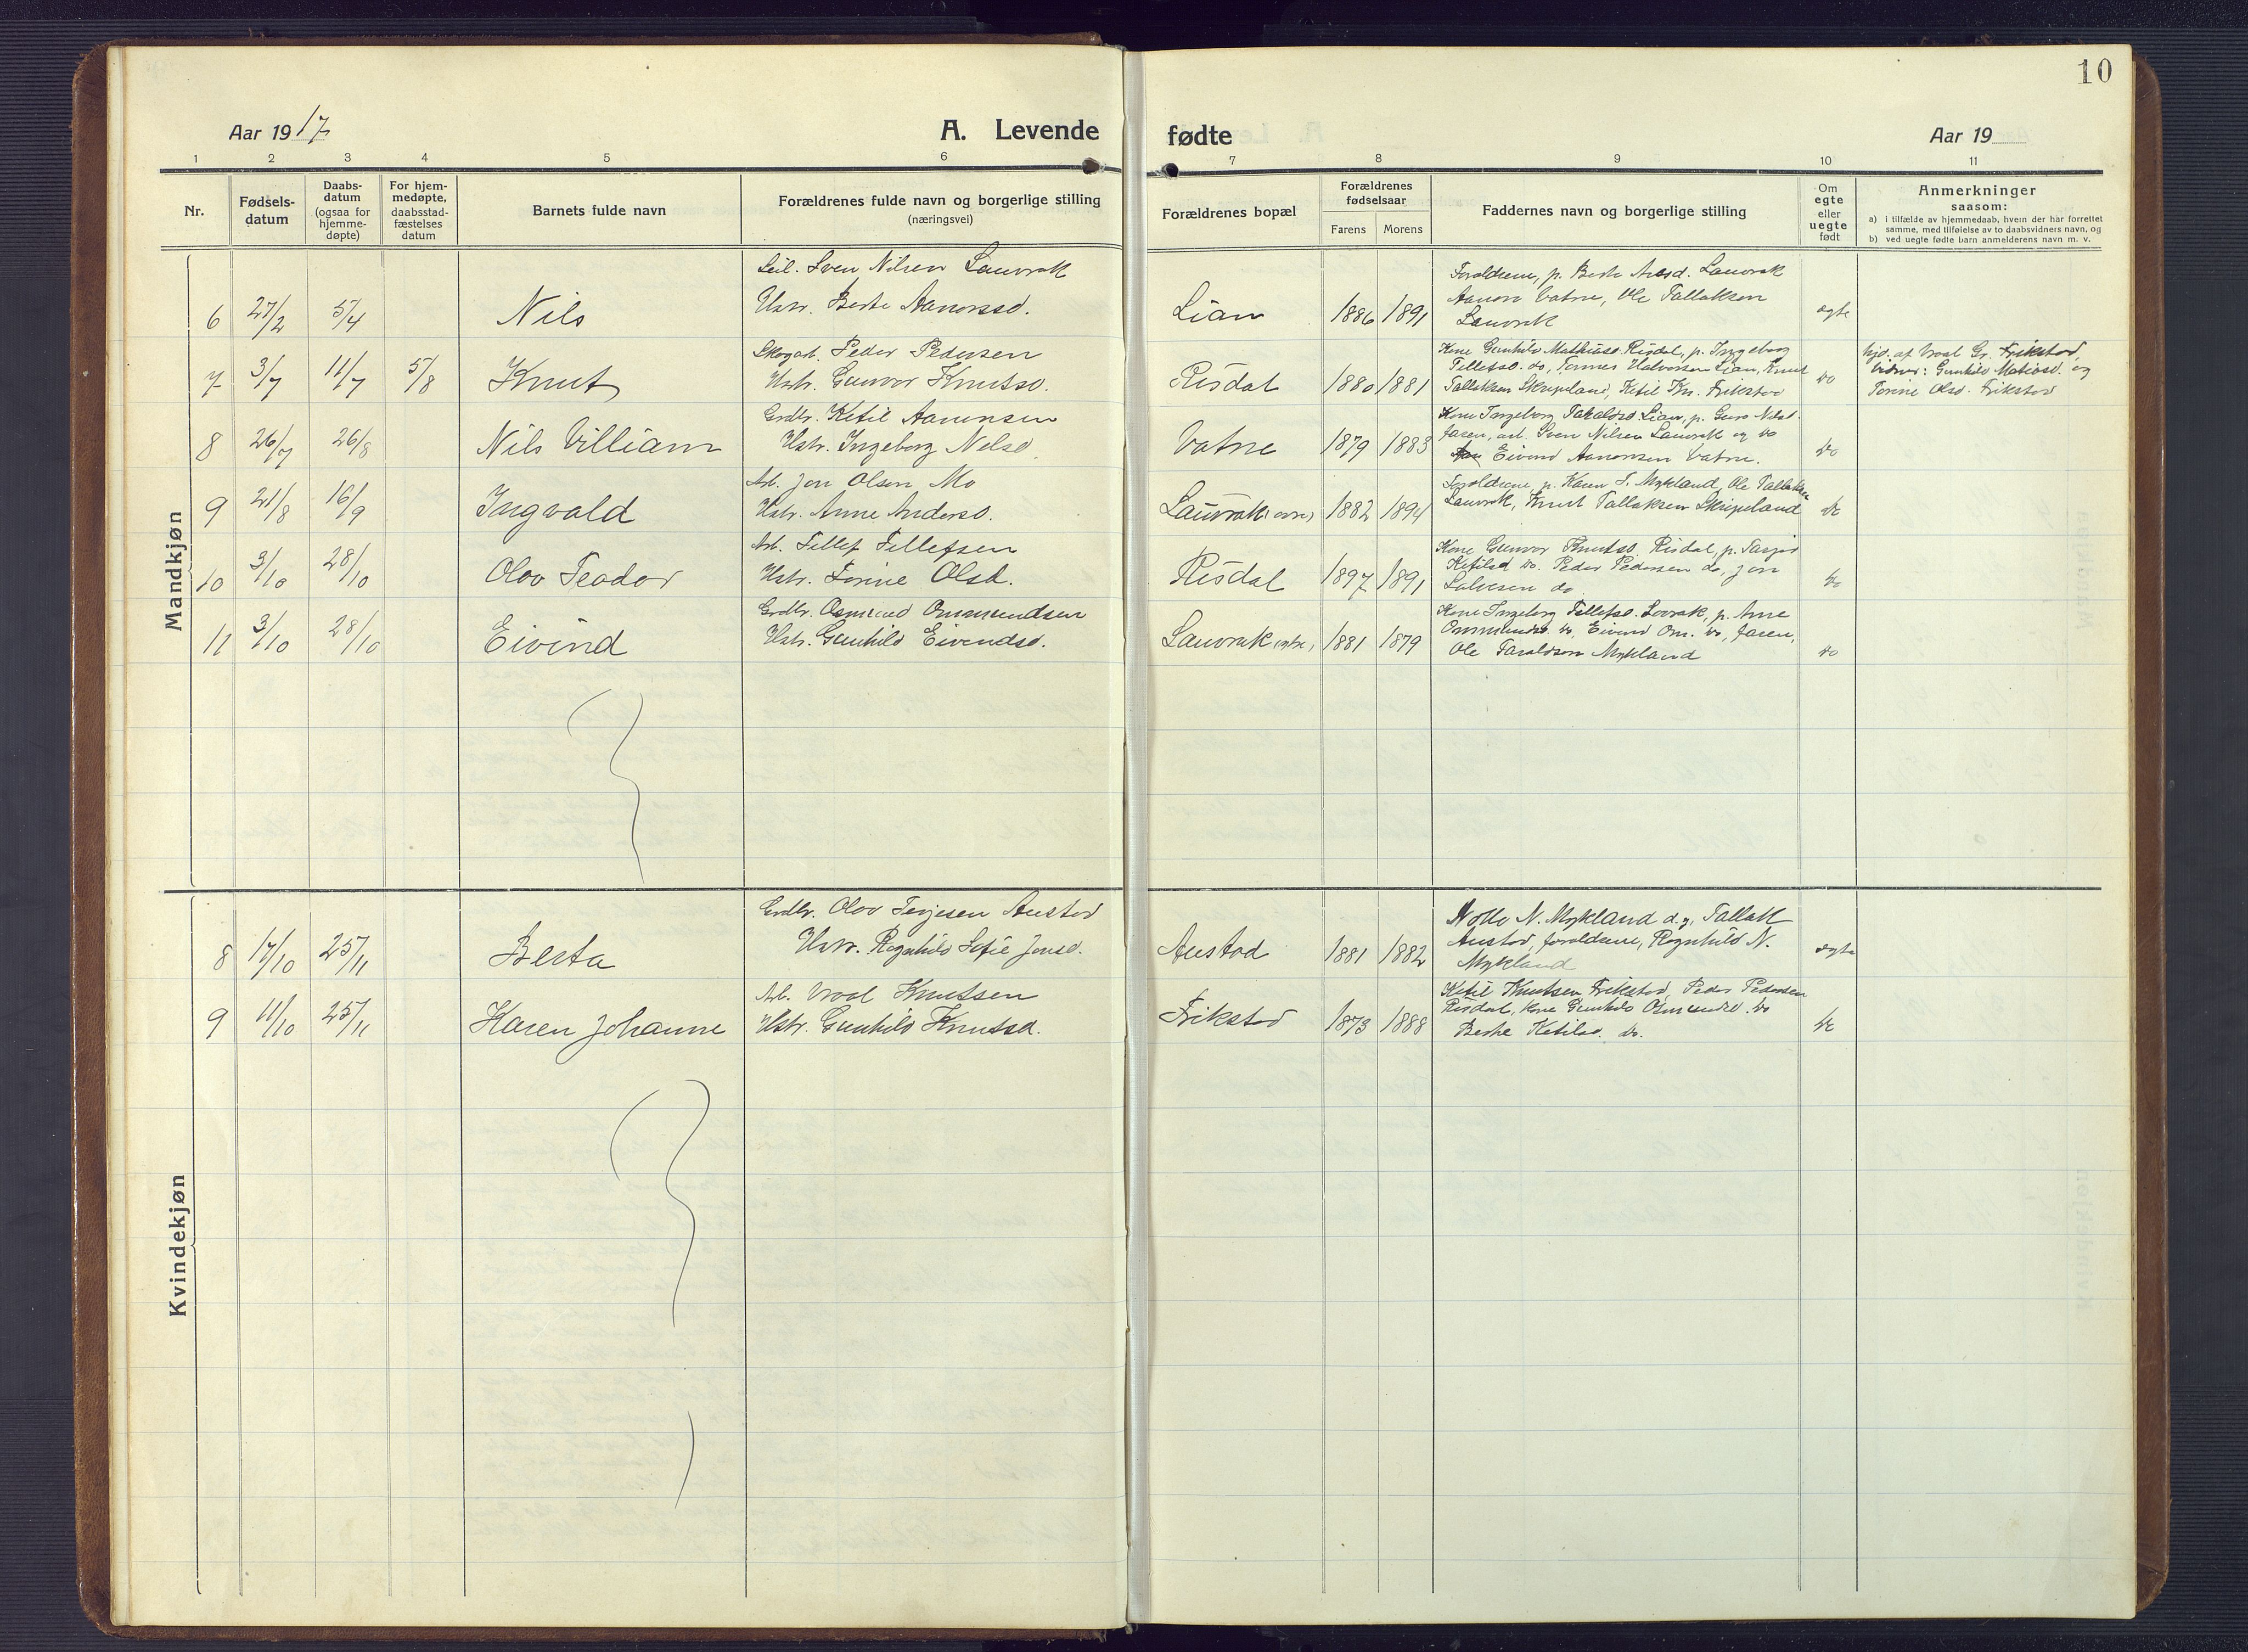 10
Aar 1917
A. Levende
fødte
Aar 19
1 2 3 4 5 6 7 8 9 10 11
Nr.
Fødsels-
datum
Daabs-
datum
(ogsaa for
hjemme-
døpte)
For hjem-
medøpte,
daabsstad-
fæstelses
datum
Barnets fulde navn
Forældrenes fulde navn og borgerlige stilling
(næringsvei)
Forældrenes bopæl
Forældrenes
fødselsaar
Farens Morens
Faddernes navn og borgerlige stilling
Om
egte
eller
uegte
født
Anmerkninger
saasom:
a) i tilfælde av hjemmedaab, hvem der har forrettet
samme, med tilføielse av to daabsvidners navn, og
b) ved uegte fødte barn anmelderens navn m. v.
Mandkjøn
Sven Nilsen Lauvrak
6 27/2 5/4 Nils
Ustr. Berte Aanonsd.
Lian 1886 1891
Forældrene, p. Berte Lauvrak
Aanon Vatne, Ole Tallaksen
Lauvrak
egte
7 3/7 11/7 5/8 Knut
Skogarb. Peder Pedersen
Ustr. Gunvor Knutsd.
Risdal 1880 1881
Kone Gunhild Mathiasd. Risdal, p. Ingeborg
Tellefsd. do, Tormes Halvorsen Lian, Knut
Tallaksen Skripeland, Ketil Kn. Frikstad
do
hjd. af Vraal Gr. Frikstad,
Vidner: Gunhild Matiasd. og
Torine Olsd. Frikstad
8 26/7 26/8 Nils Villiam
Grdbr. Ketil Aanonsen
Ustr. Ingeborg Nilsd.
Vatne 1879 1883
Kone Ingeborg Taraldsd. Lian, p. Guro Nilsd.
faren, arb. Sven Nilsen Lauvrak og do
Eivind Aanonsen Vatne.
do
9 21/8 16/9 Ingvald
Arb. Jon Olsen Mo
Ustr. Anne Andersd.
Lauvrak (øvre) 1882 1894
Forældrene, p. Karen T. Mykland, Ole Tallaksen
Lauvrak, Knut Tallaksen Skripeland
do
10 3/10 28/10 Olav Teodor
Arb. Tellef Tellefsen
Ustr. Torine Olsd.
Risdal 1897 1891
Kone Gunvor Knutsd. Risdal, p. Tarjer
Ketilsd do. Peder Pedersen do, Jon
Salvesen do
do
11 3/10 28/10 Eivind
Grdbr. Osmund Ommundsen
Ustr. Gunhild Eivendsd.
Lauvrak 1881 1879
Kone Ingeborg Tellefsd. Lovrak, p. Anne
Ommundsd. do, Eivind Om. do, faren,
Ole Taraldsen Mykland
do
Kvindekjøn
Grdbr. Olav Terjesen Austad
8 17/10 25/11 Berta
Ustr. Ragnhild Sofie Jensd.
Austad 1881 1882
N. Mykland d.y, Tallak
Austad, forældrene, Ragnhild N.
Mykland
egte
9 11/10 25/11 Karen Johanne
Arb. Vraal Knutsen
Ustr. Gunhild Knutsd.
Frikstad 1873 1888
Ketil Knutsen Frikstad, Peder Pedersen
Risdal, kone Gunhild Osmundsd. do
Berthe Ketilsd. do.
do